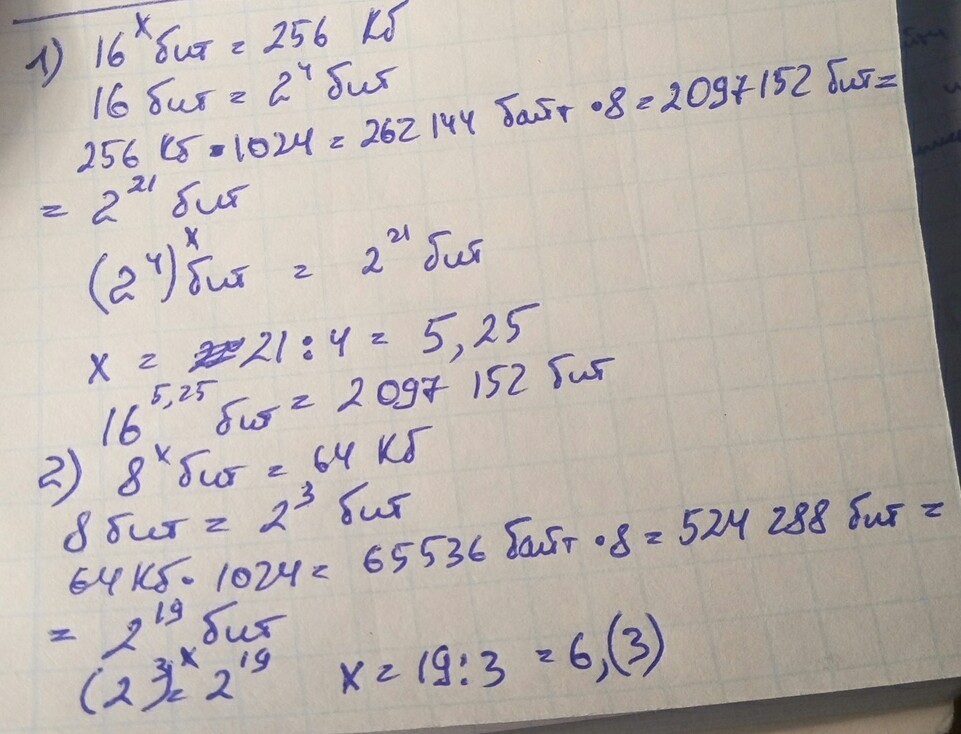 1) 16^x бит = 256 Кб
16 бит = 2^4 бит
256 Кб • 1024 = 262 144 байт • 8 = 2097152 бит =
= 2^21 бит
(2^4)^x бит = 2^21 бит
x = 21 : 4 = 5,25
16^5,25 бит = 2 097 152 бит
2) 8^x бит = 64 Кб
8 бит = 2^3 бит
64 Кб • 1024 = 65536 байт • 8 = 524 288 бит =
= 2^19 бит
(2^3)^x = 2^19 x = 19 : 3 = 6,(3)